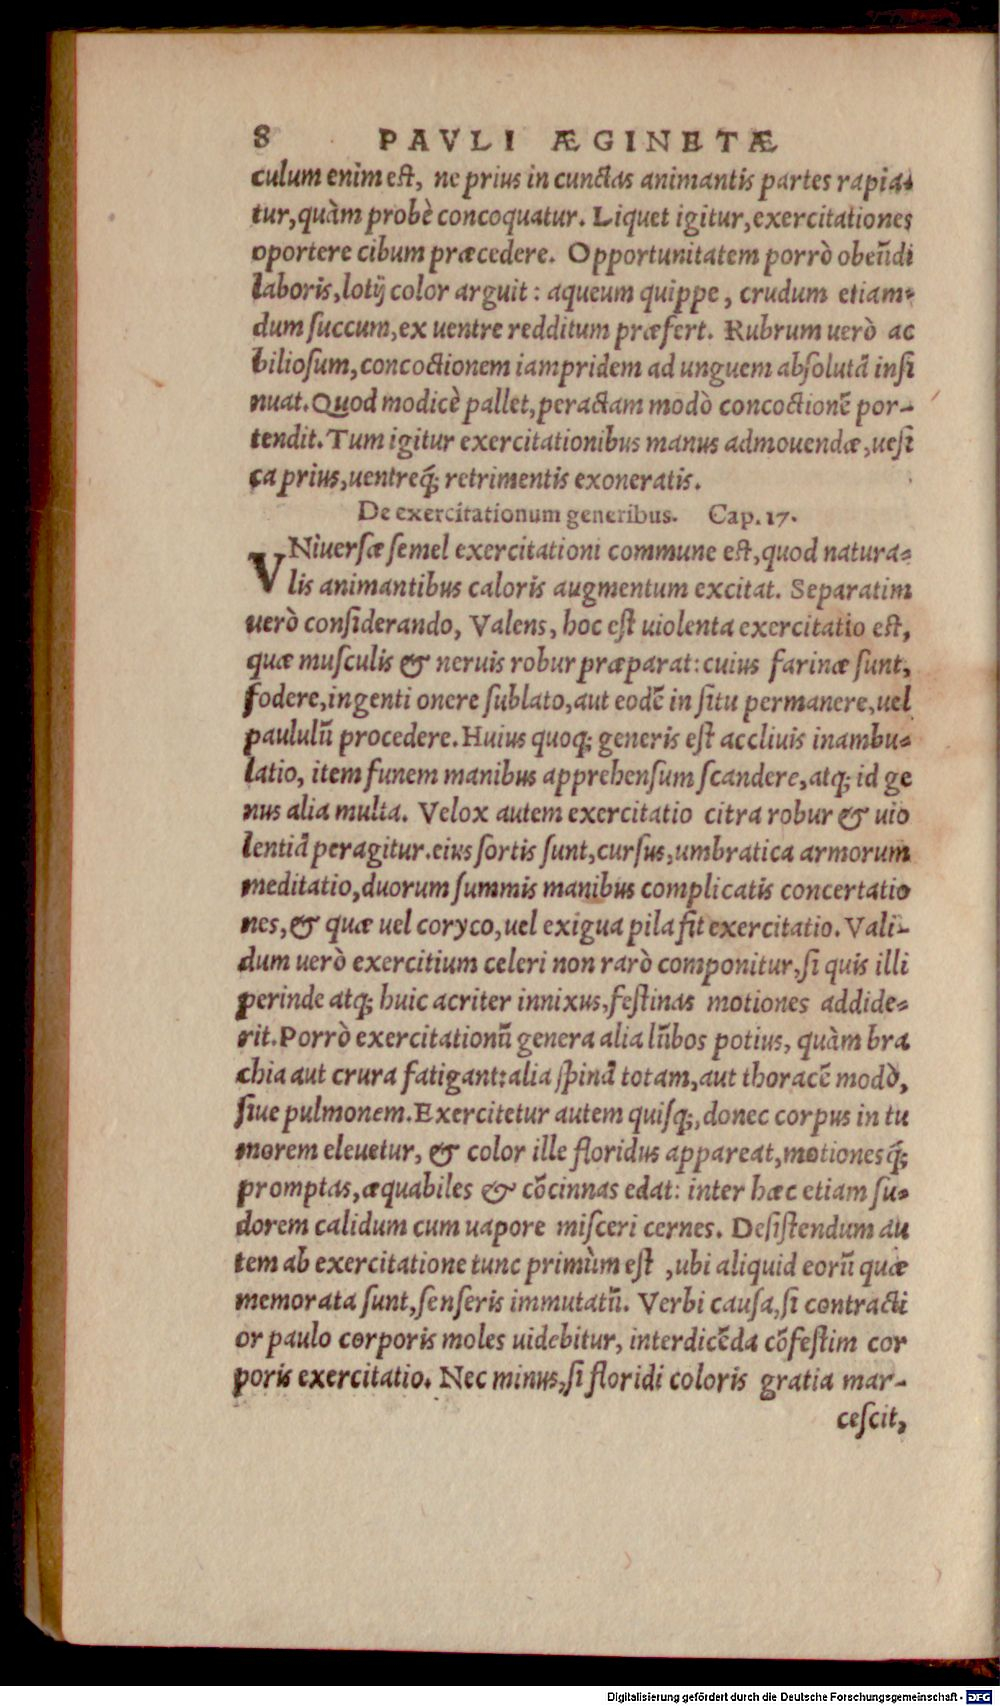 8 PAVLI ÆGINETÆ
culum enim est, ne prius in cunctas animantis partes rapia-
tur, quàm probè concoquatur. Liquet igitur, exercitationes
oportere cibum præcedere. Opportunitatem porrò obeũdi
laboris, lotij color arguit: aqueum quippe, crudum etiam-
dum succum, ex uentre redditum præfert. Rubrum uerò ac
biliosum, concoctionem iampridem ad unguem absolutã insi
nuat. Quod modicè pallet, peractam modò concoctionẽ por-
tendit. Tum igitur exercitationibus manus admouendæ, uesi
ca prius, uentreq́; retrimentis exoneratis.
De exercitationum generibus. Cap. 17.
VNiuersæ semel exercitationi commune est, quod natura-
lis animantibus caloris augmentum excitat. Separatim
uerò considerando, Valens, hoc est uiolenta exercitatio est,
quæ musculis & neruis robur præparat: cuius farinæ sunt,
fodere, ingenti onere sublato, aut eodẽ in situ permanere, uel
paululũ procedere. Huius quoq; generis est accliuis inambu-
latio, item funem manibus apprehensum scandere, atq; id ge
nus alia multa. Velox autem exercitatio citra robur & uio
lentiã peragitur. eius sortis sunt, cursus, umbratica armorum
meditatio, duorum summis manibus complicatis concertatio
nes, & quæ uel coryco, uel exigua pila fit exercitatio. Vali-
dum uerò exercitium celeri non rarò componitur, si quis illi
perinde atq; huic acriter innixus, festinas motiones addide-
rit. Porrò exercitationũ genera alia lũbos potius, quàm bra
chia aut crura fatigant: alia spinã totam, aut thoracẽ modò,
siue pulmonem. Exercitetur autem quisq;, donec corpus in tu
morem eleuetur, & color ille floridus appareat, motionesq́;
promptas, æquabiles & cõcinnas edat: inter hæc etiam su-
dorem calidum cum uapore misceri cernes. Desistendum au
tem ab exercitatione tunc primùm est, ubi aliquid eorũ quæ
memorata sunt, senseris immutatũ. Verbi causa, si contracti
or paulo corporis moles uidebitur, interdicẽda cõfestim cor
poris exercitatio. Nec minus, si floridi coloris gratia mar-
cescit,
Digitalisierung gefördert durch die Deutsche Forschungsgemeinschaft - DFG